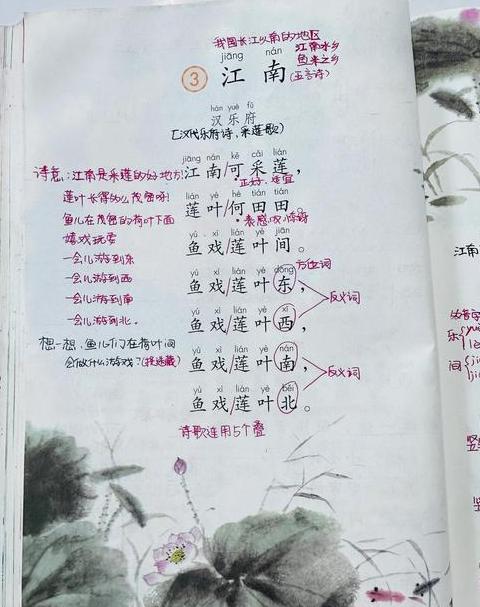 我国长江以南的地区
江南水乡
鱼米之乡
jiāng nán
3 江南 (五言诗)
hàn yuè fǔ
汉乐府
[汉代乐府诗,采莲歌]
诗意:江南是采莲的好地方!
jiāng nán kě cǎi lián
江南/可采莲,
正好,适宜
莲叶长得多么茂密呀!
lián yè hé tián tián
莲叶/何田田。
表感叹,
鱼儿在茂密的荷叶下面
嬉戏玩耍
yú xì lián yè jiān
鱼戏/莲叶间。
一会儿游到东
方位词
yú xì lián yè dōng
鱼戏/莲叶东,
一会儿游到西
反义词
一会儿游到南
yú xì lián yè xī
鱼戏/莲叶西,
一会儿游到北。
想一想,鱼儿们在荷叶间
会做什么游戏?(捉迷藏)
yú xì lián yè nán
鱼戏/莲叶南,
反义词
yú xì lián yè běi
鱼戏/莲叶北。
诗歌连用5个叠
江南
乐
间